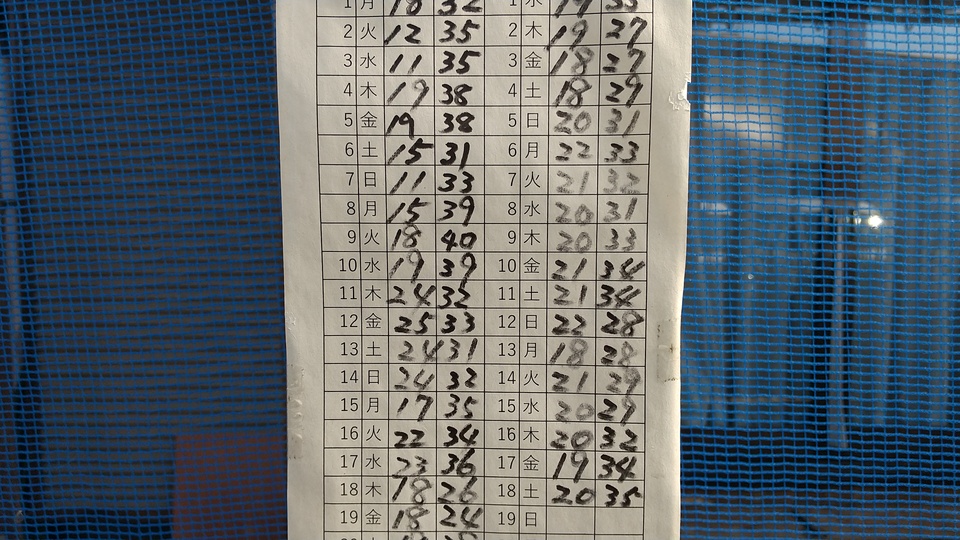 1 月 18 32 1 水 19 33
2 火 12 35 2 木 19 27
3 水 11 35 3 金 18 27
4 木 19 38 4 土 18 29
5 金 19 38 5 日 20 31
6 土 15 31 6 月 22 33
7 日 11 33 7 火 21 32
8 月 15 39 8 水 20 31
9 火 18 40 9 木 20 33
10 水 19 39 10 金 21 34
11 木 24 32 11 土 21 34
12 金 25 33 12 日 22 28
13 土 24 31 13 月 18 28
14 日 24 32 14 火 21 29
15 月 17 35 15 水 20 29
16 火 22 34 16 木 20 32
17 水 23 36 17 金 19 34
18 木 18 26 18 土 20 35
19 金 18 24 19 日